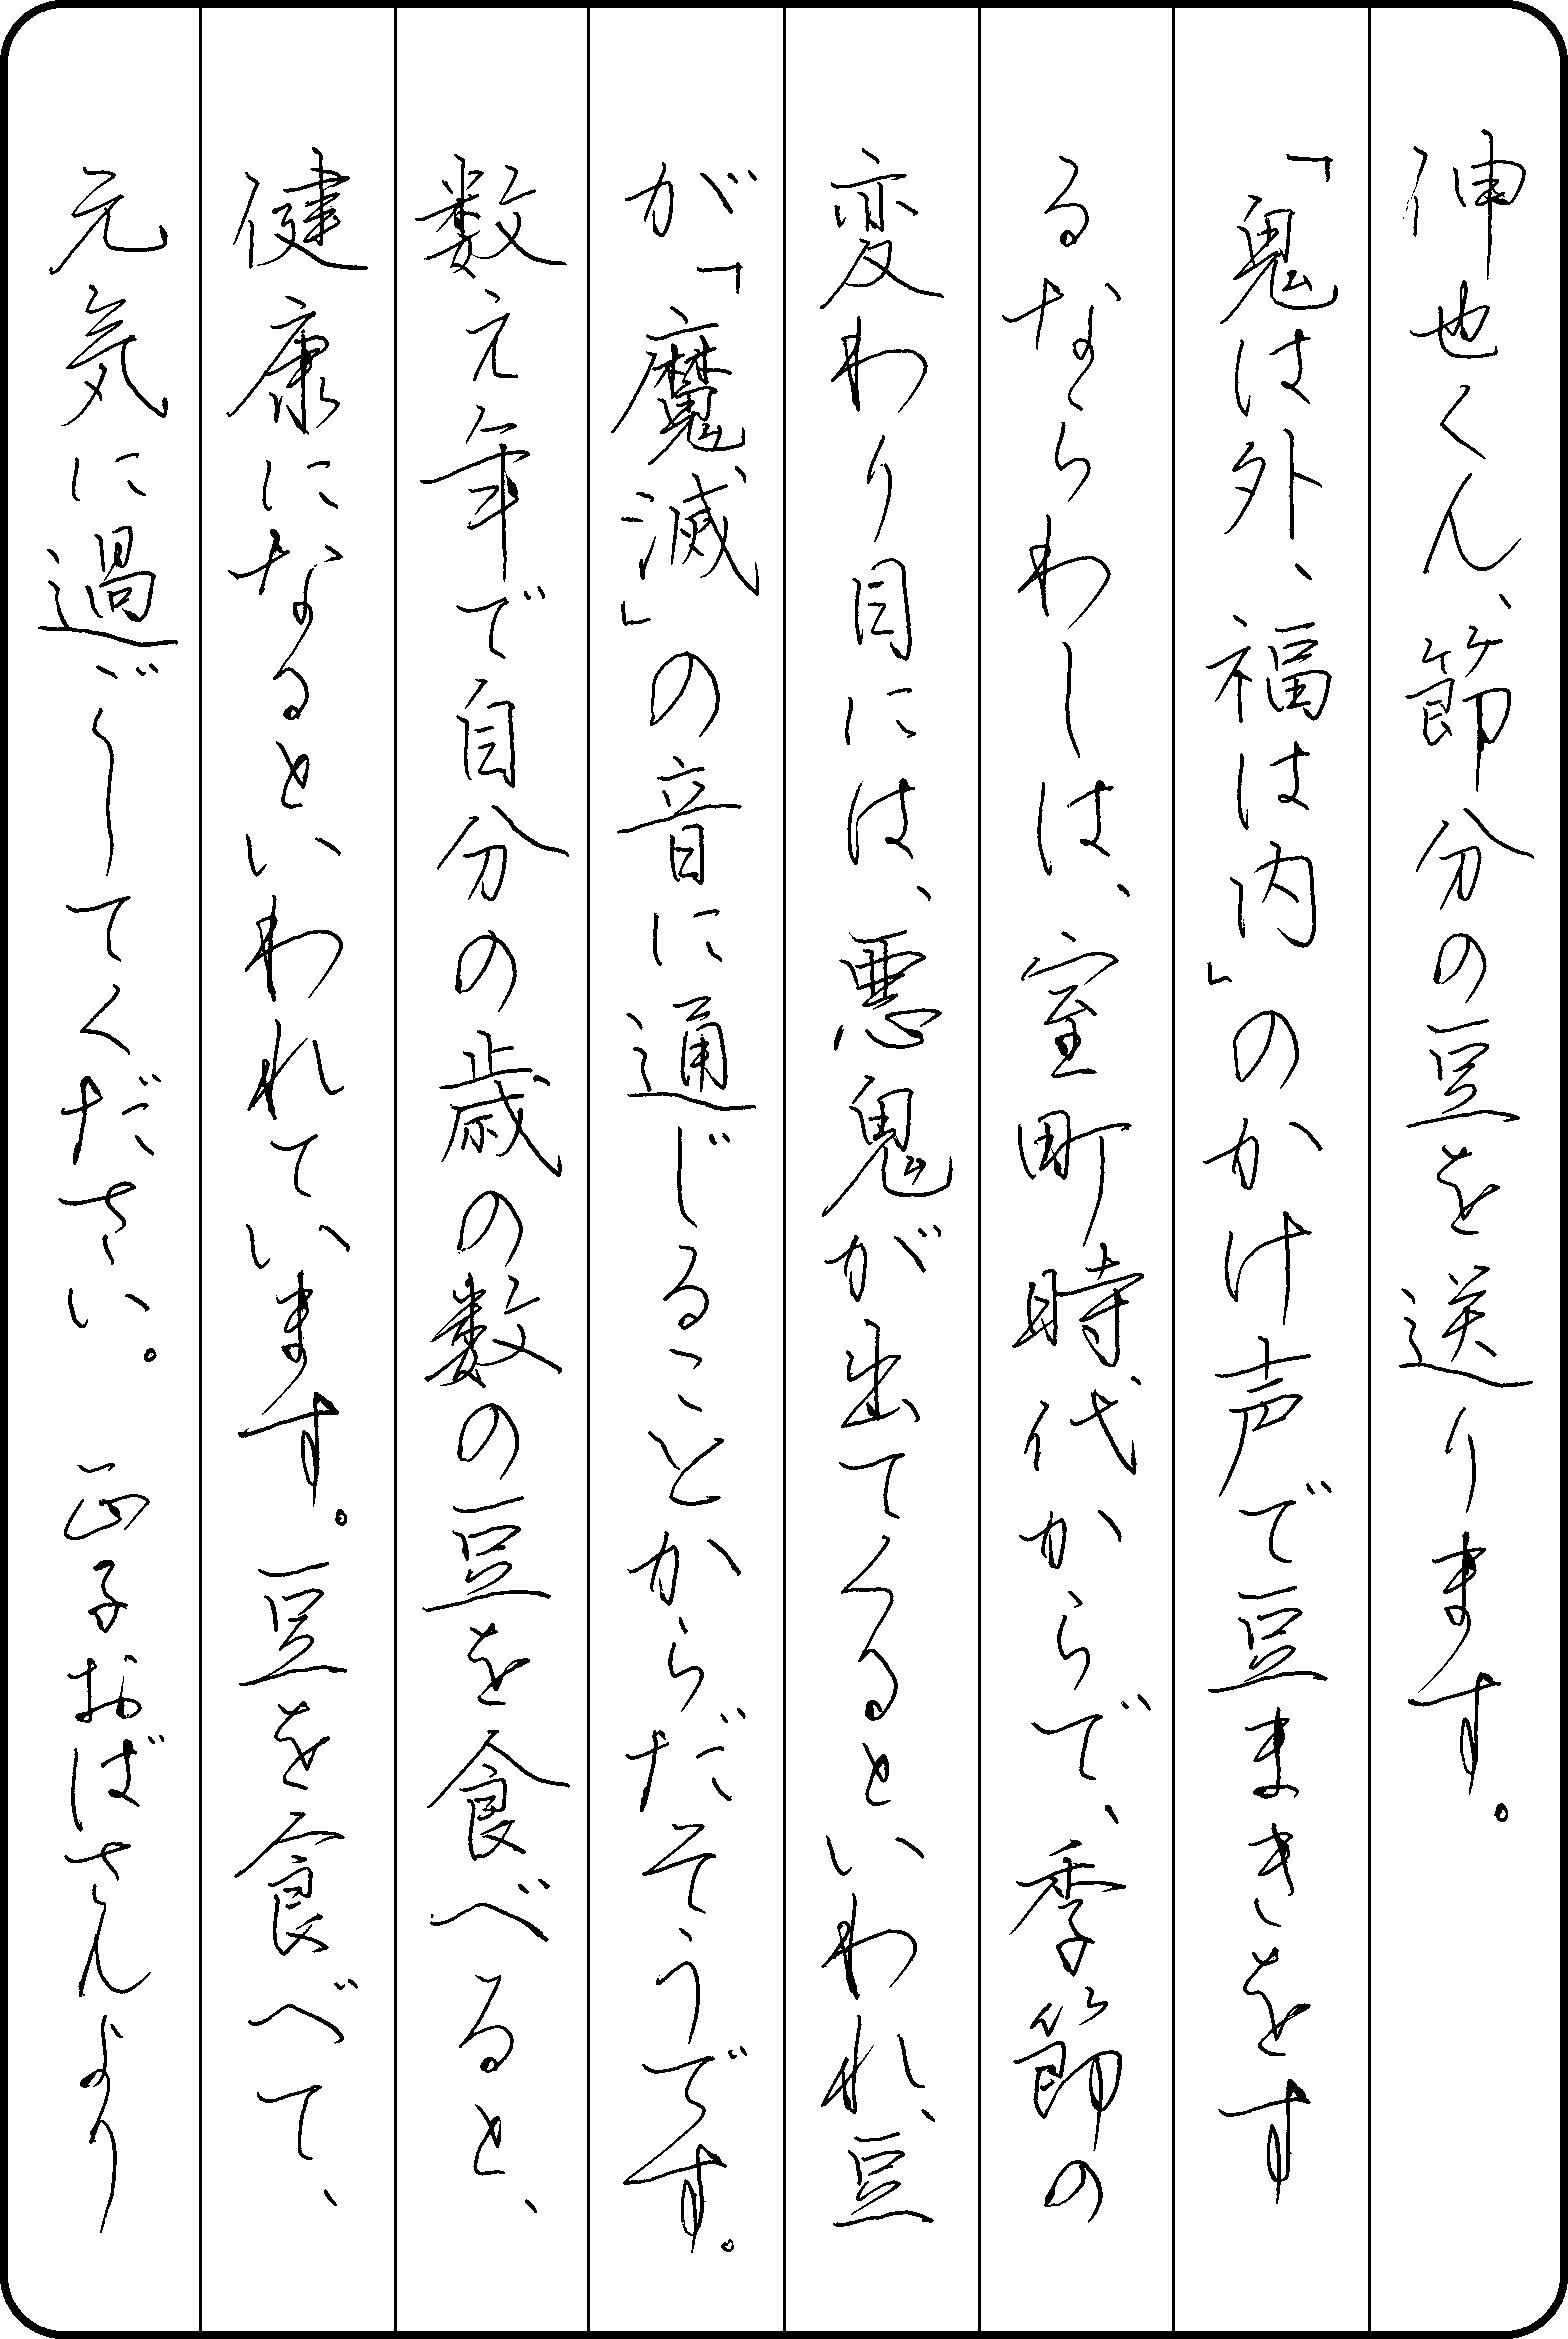 伸也くん、節分の豆を送ります。
「鬼は外、福は内」のかけ声で豆まきをす
るならわしは、室町時代からで、季節の
変わり目には、悪鬼が出てくるといわれ、豆
が「魔滅」の音に通じることからだそうです。
数え年で自分の歳の数の豆を食べると、
健康になるといわれています。豆を食べて、
元気に過ごしてください。 正子おばさんより